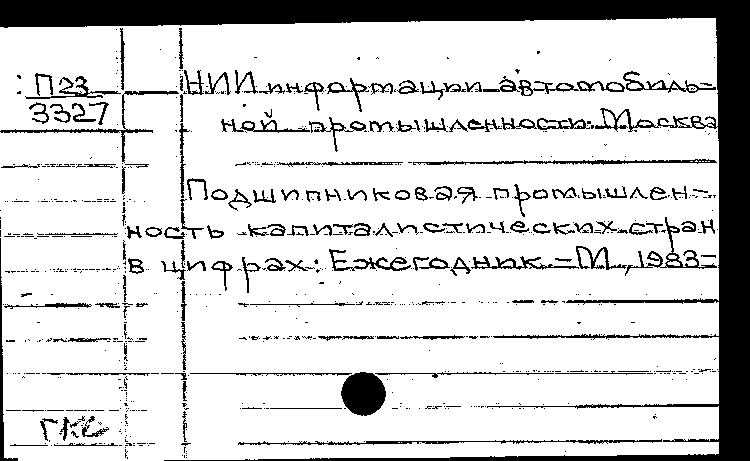 П23
3327
НИИ информации автомобиль=
ной промышленности. Москва
Подшипниковая промышлен-
ность капиталистических стран
в цифрах: Ежегодник. - М., 1983-
ГКС